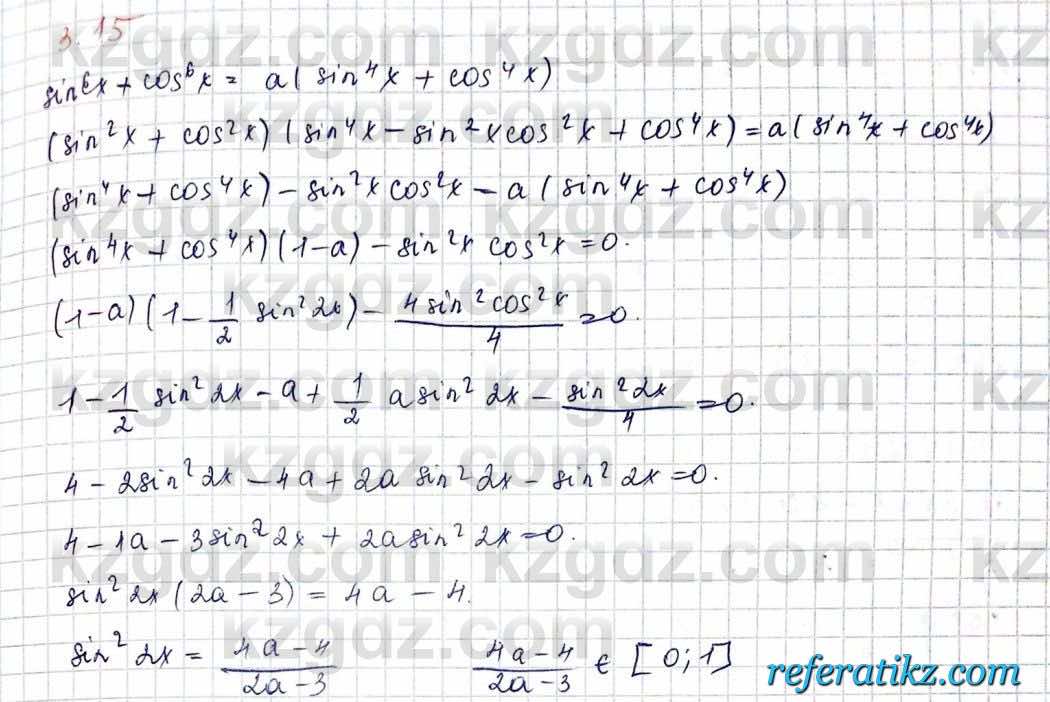 3.15
sin⁶x + cos⁶x = a(sin⁴x + cos⁴x)
(sin²x + cos²x)(sin⁴x - sin²x cos²x + cos⁴x) = a(sin⁴x + cos⁴x)
(sin⁴x + cos⁴x) - sin²x cos²x - a(sin⁴x + cos⁴x)
(sin⁴x + cos⁴x)(1-a) - sin²x cos²x = 0.
(1-a)(1 - 1/2 sin²2x) - 4sin²cos²x/4 = 0.
1 - 1/2 sin²2x - a + 1/2 a sin²2x - sin²2x/4 = 0.
4 - 2sin²2x - 4a + 2a sin²2x - sin²2x = 0.
4 - 1a - 3sin²2x + 2a sin²2x = 0.
sin²2x(2a - 3) = 4a - 4.
sin²2x = 4a-4/2a-3     4a-4/2a-3 ∈ [0;1]
kzgdz.com
referatikz.com